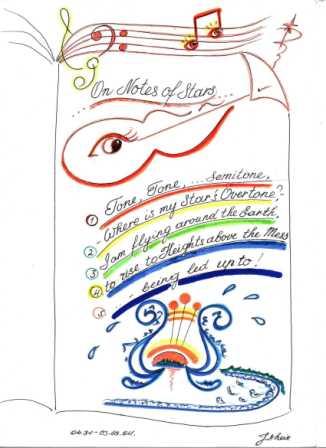 On Notes of Stars...
Tone, Tone, ... semitone,
① - Where is my Star's Overtone?-
② I am flying around the Earth,
③ to rise to Heights above the Mess
④ ... being led up to!
⑤